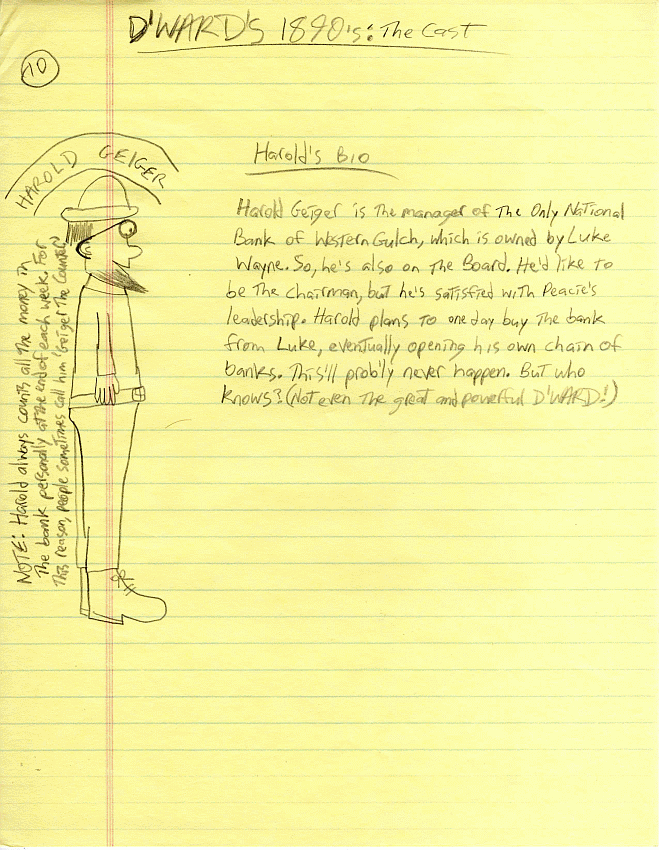 D'WARD'S 1890's: The Cast
10
HAROLD GEIGER
Harold's Bio
Harold Geiger is the manager of The Only National
Bank of Western Gulch, which is owned by Luke
Wayne. So, he's also on the Board. He'd like to
be the chairman, but he's satisfied with Peacie's
leadership. Harold plans to one day buy the bank
from Luke, eventually opening his own chain of
banks. This'll prob'ly never happen. But who
knows? (Not even the great and powerful D'WARD!)
NOTE: Harold always counts all the money in
the bank personally at the end of each week. For
this reason, people sometimes call him 'Geiger the Counter'